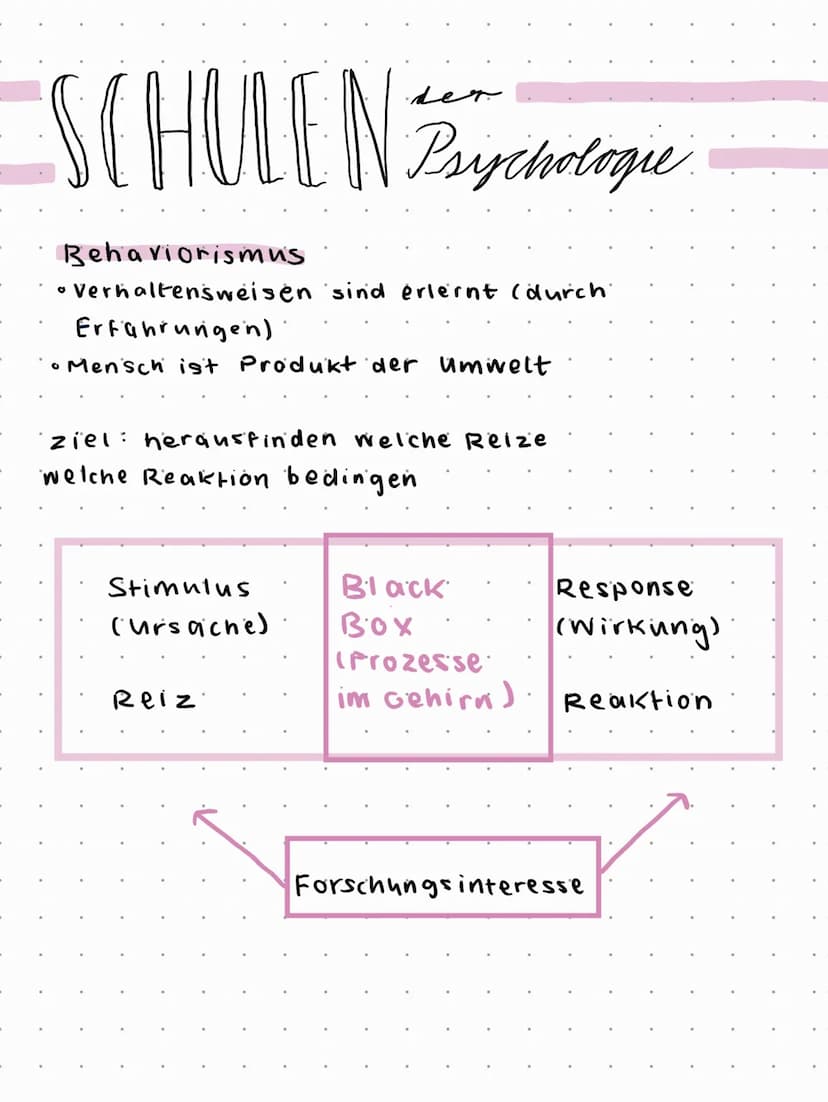 SCHULEN der
Psychologie
Behaviorismus
• Verhaltensweisen sind erlernt (durch
Erfahrungen)
• Mensch ist Produkt der Umwelt
Ziel: herausfinden welche Reize
welche Reaktion bedingen
Stimulus
(Ursache)
Reiz
Black
Box
(Prozesse
im Gehirn)
Response
(Wirkung)
Reaktion
Forschungsinteresse